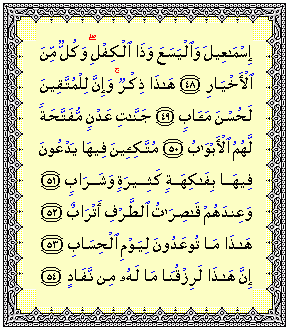 إِسْمَـٰعِيلَ وَٱلْيَسَعَ وَذَا ٱلْكِفْلِ ۖ وَكُلٌّ مِّنَ
ٱلْأَخْيَارِ ﴿٤٨﴾ هَـٰذَا ذِكْرٌ ۚ وَإِنَّ لِلْمُتَّقِينَ
لَحُسْنَ مَـَٔابٍ ﴿٤٩﴾ جَنَّـٰتِ عَدْنٍ مُّفَتَّحَةً
لَّهُمُ ٱلْأَبْوَٰبُ ﴿٥٠﴾ مُتَّكِـِٔينَ فِيهَا يَدْعُونَ
فِيهَا بِفَـٰكِهَةٍ كَثِيرَةٍ وَشَرَابٍ ﴿٥١﴾
وَعِندَهُمْ قَـٰصِرَٰتُ ٱلطَّرْفِ أَتْرَابٌ ﴿٥٢﴾
هَـٰذَا مَا تُوعَدُونَ لِيَوْمِ ٱلْحِسَابِ ﴿٥٣﴾
إِنَّ هَـٰذَا لَرِزْقُنَا مَا لَهُۥ مِن نَّفَادٍ ﴿٥٤﴾